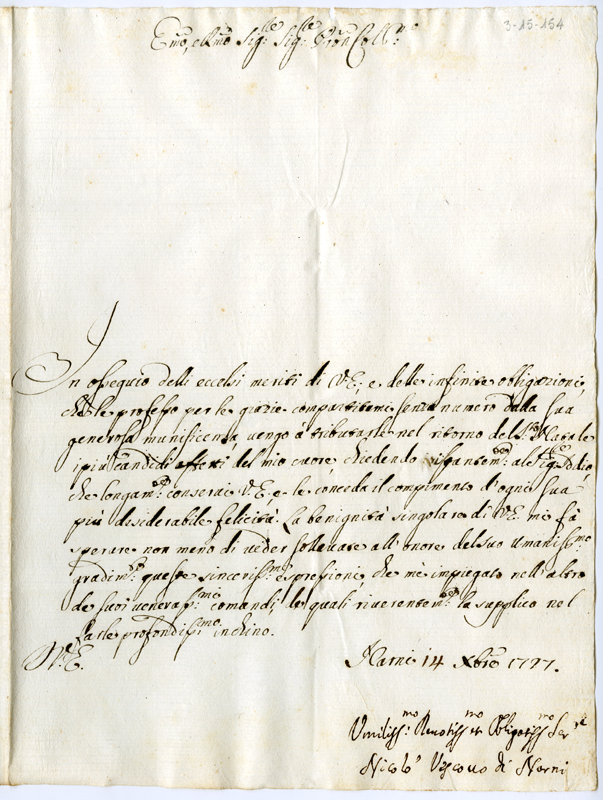 3-15-154
Em̃o, e Rm̃o Sig.re Sig.re Pron Coll.mo
In ossequio delli eccelsi meriti di V.E. e delle infinite obligazioni,
che le professo per le grazie compartitemi senza numero dalla sua
generosa munificenza vengo à tributarle nel ritorno del S.to Natale
i più candidi affetti del mio cuore, chiedendo instantem.te al Sig.re Iddio
che longam.te conserui V.E., e le conceda il compimento d'ogni sua
più disiderabile felicità. La benignità singolare di V.E. mi fà
sperare non meno di ueder solleuate all'onore del suo umaniss.mo
gradim.to queste sinceriss.me espressioni, che me impiegato nell'
de suoi veneratiss.mi comandi, le quali riuerentem.te la supplico nel
farle profondiss.mo inchino.
V.E.
Narni 14 Xbre 1727.
Umiliss.mo Deuotiss.mo et Obligatiss.mo Ser.re
Nicolò Vescouo di Narni